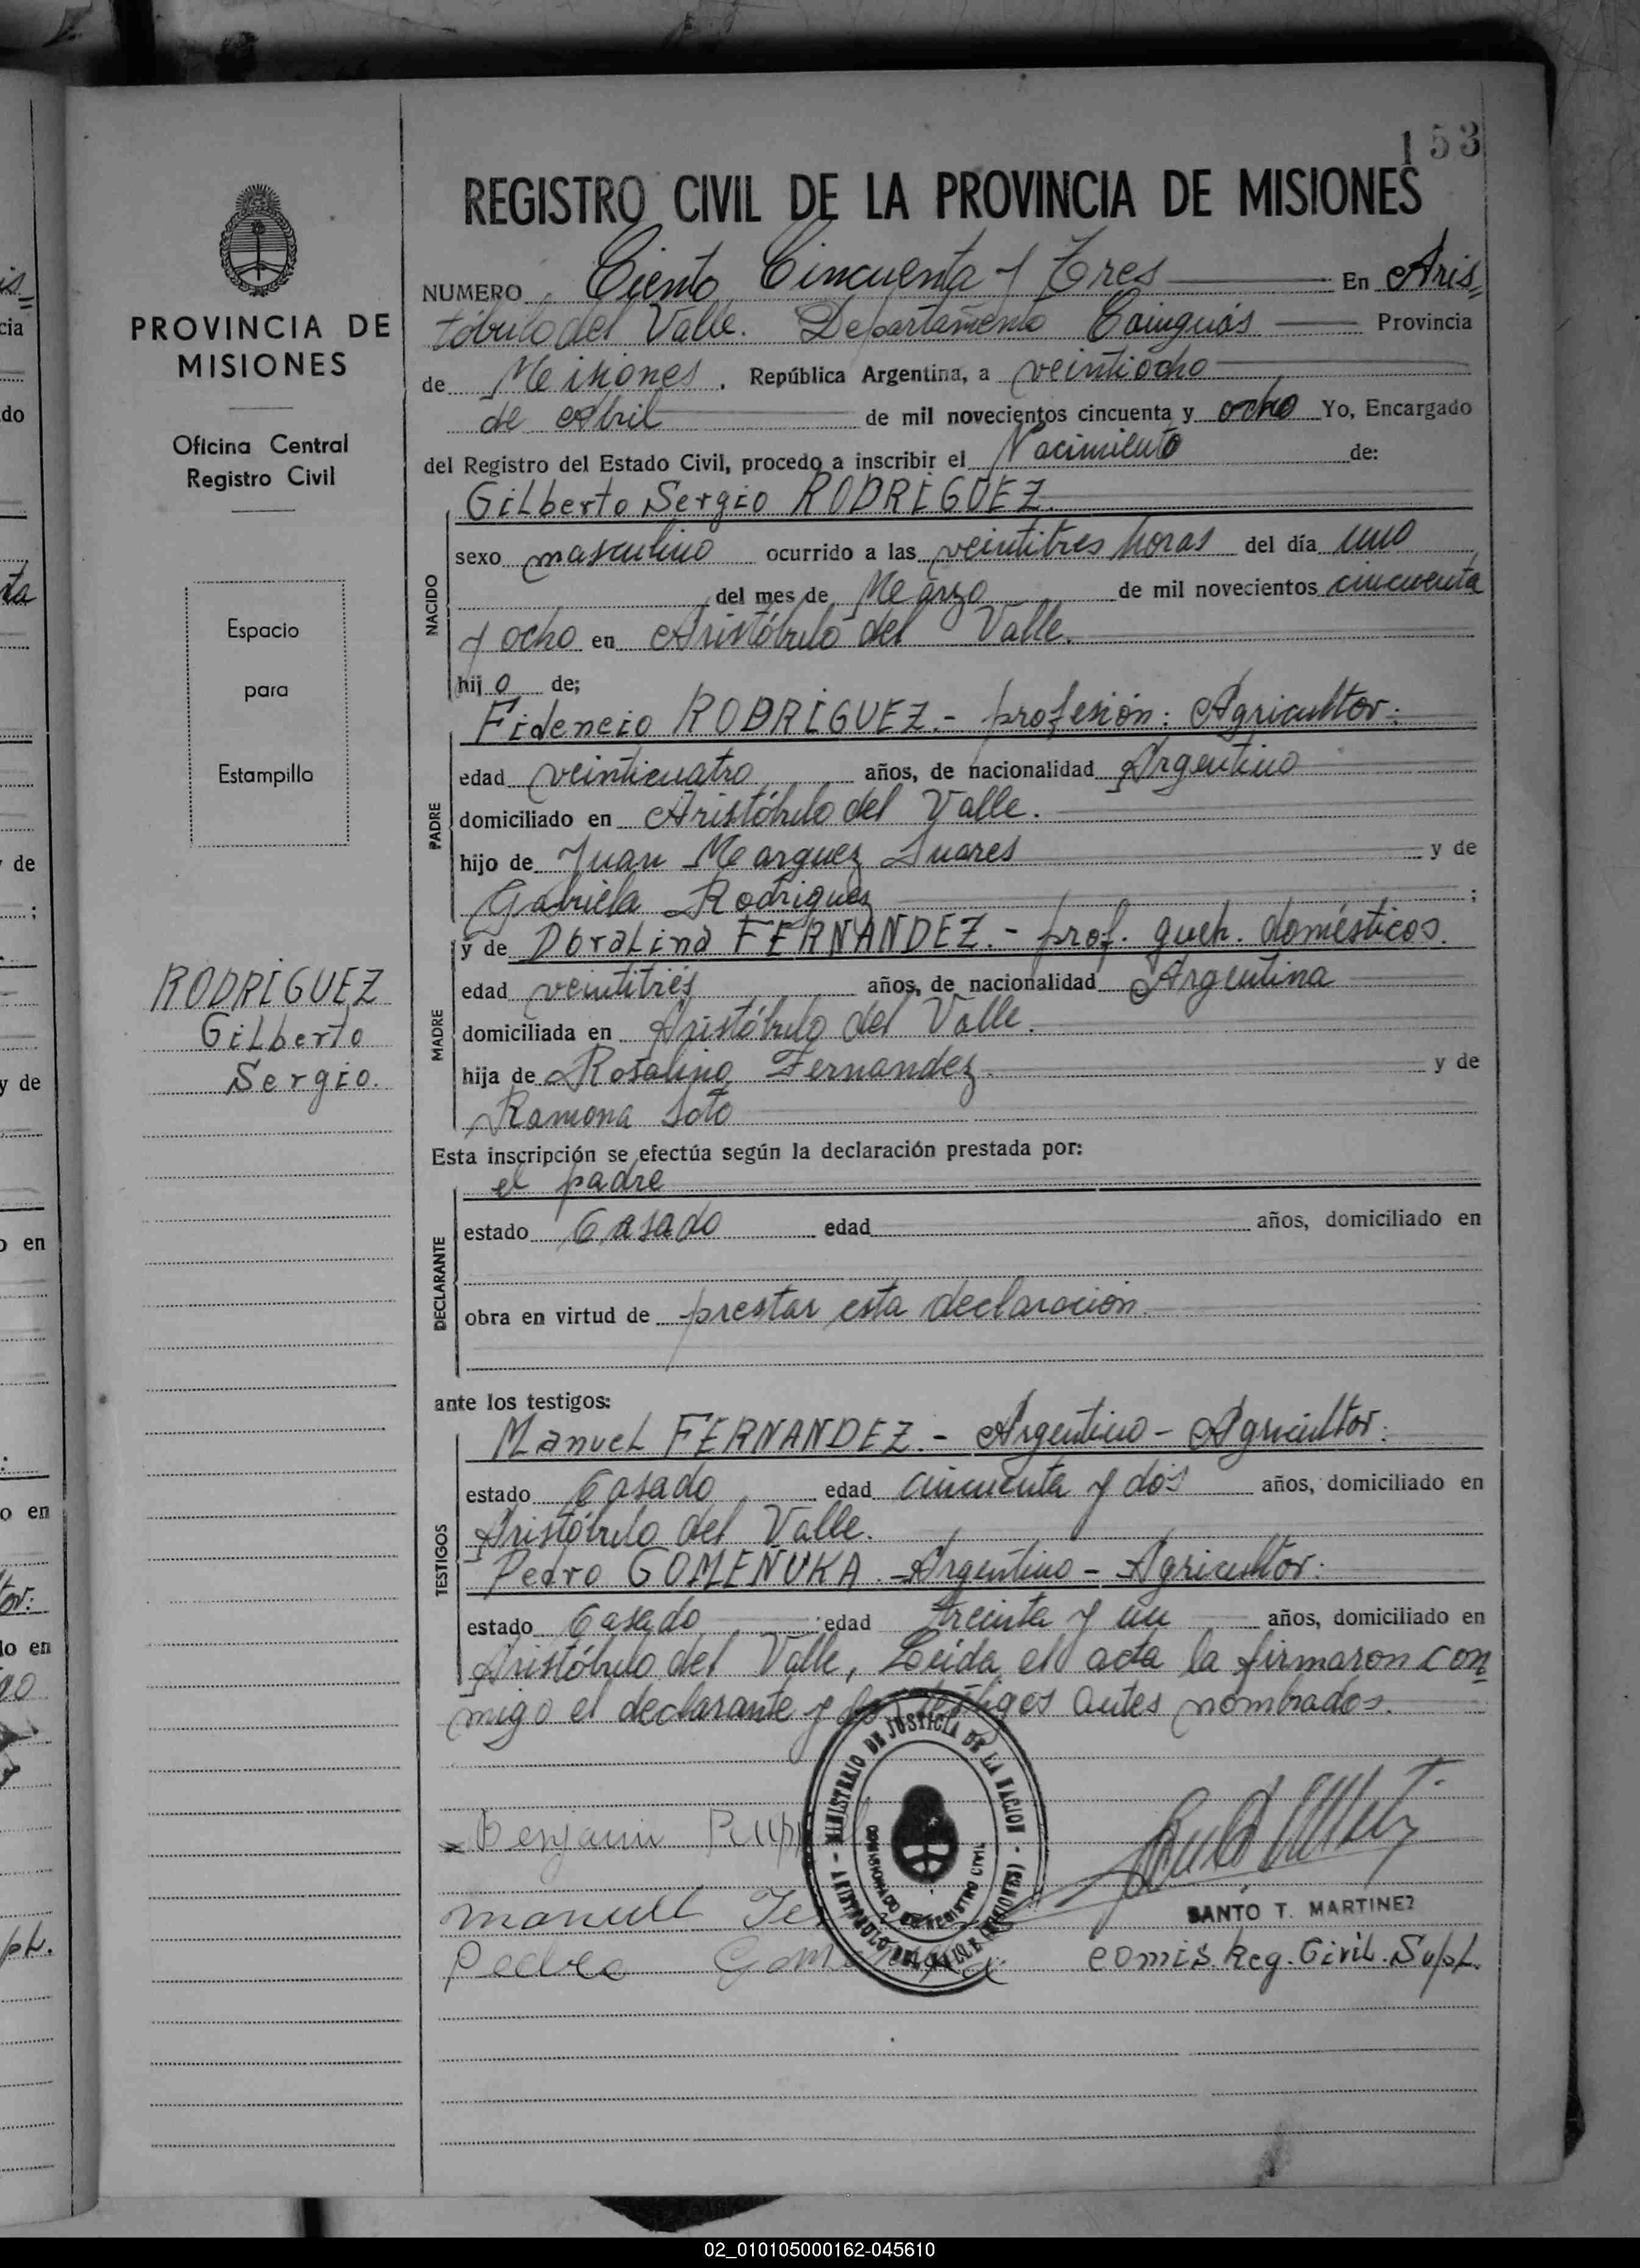 153
REGISTRO CIVIL DE LA PROVINCIA DE MISIONES
PROVINCIA DE
MISIONES
Oficina Central
Registro Civil
Espacio
para
Estampilla
RODRÍGUEZ
Gilberto
Sergio.
NUMERO Ciento Cincuenta y Tres En Aris=
tóbulo del Valle. Departamento Cainguás Provincia
de Misiones. República Argentina, a veintiocho
de Abril de mil novecientos cincuenta y ocho Yo, Encargado
del Registro del Estado Civil, procedo a inscribir el Nacimiento de:
Gilberto Sergio RODRÍGUEZ.
NACIDO
sexo masculino ocurrido a las veintitres horas del día uno
del mes de Marzo de mil novecientos cincuenta
y ocho en Aristóbulo del Valle.
hijo de;
Fidencio RODRÍGUEZ.- profesión: Agricultor.
PADRE
edad veinticuatro años, de nacionalidad Argentino
domiciliado en Aristóbulo del Valle.
hijo de Juan Marquez Suares y de
Gabriela Rodriguez ;
y de Doralina FERNANDEZ.- prof. queh. domésticos.
MADRE
edad veintitrés años, de nacionalidad Argentina
domiciliada en Aristóbulo del Valle.
hija de Rosalino Fernandez y de
Ramona Soto
Esta inscripción se efectúa según la declaración prestada por:
el padre
DECLARANTE
estado Casado edad años, domiciliado en
obra en virtud de prestar esta declaración.
ante los testigos:
Manuel FERNANDEZ.- Argentino - Agricultor.
TESTIGOS
estado Casado edad cincuenta y dos años, domiciliado en
Aristóbulo del Valle.
Pedro GOMEÑUKA.- Argentino - Agricultor.
estado Casado edad treinta y un años, domiciliado en
Aristóbulo del Valle, Leída el acta la firmaron con=
migo el declarante y los testigos antes nombrados.
MINISTERIO DE JUSTICIA DE LA NACION
ARISTOBULO DEL VALLE (MISIONES)
Benjamin
Manuel
Pedro
SANTO T. MARTINEZ
Comis. Reg. Civil. Supl.
02_010105000162-045610